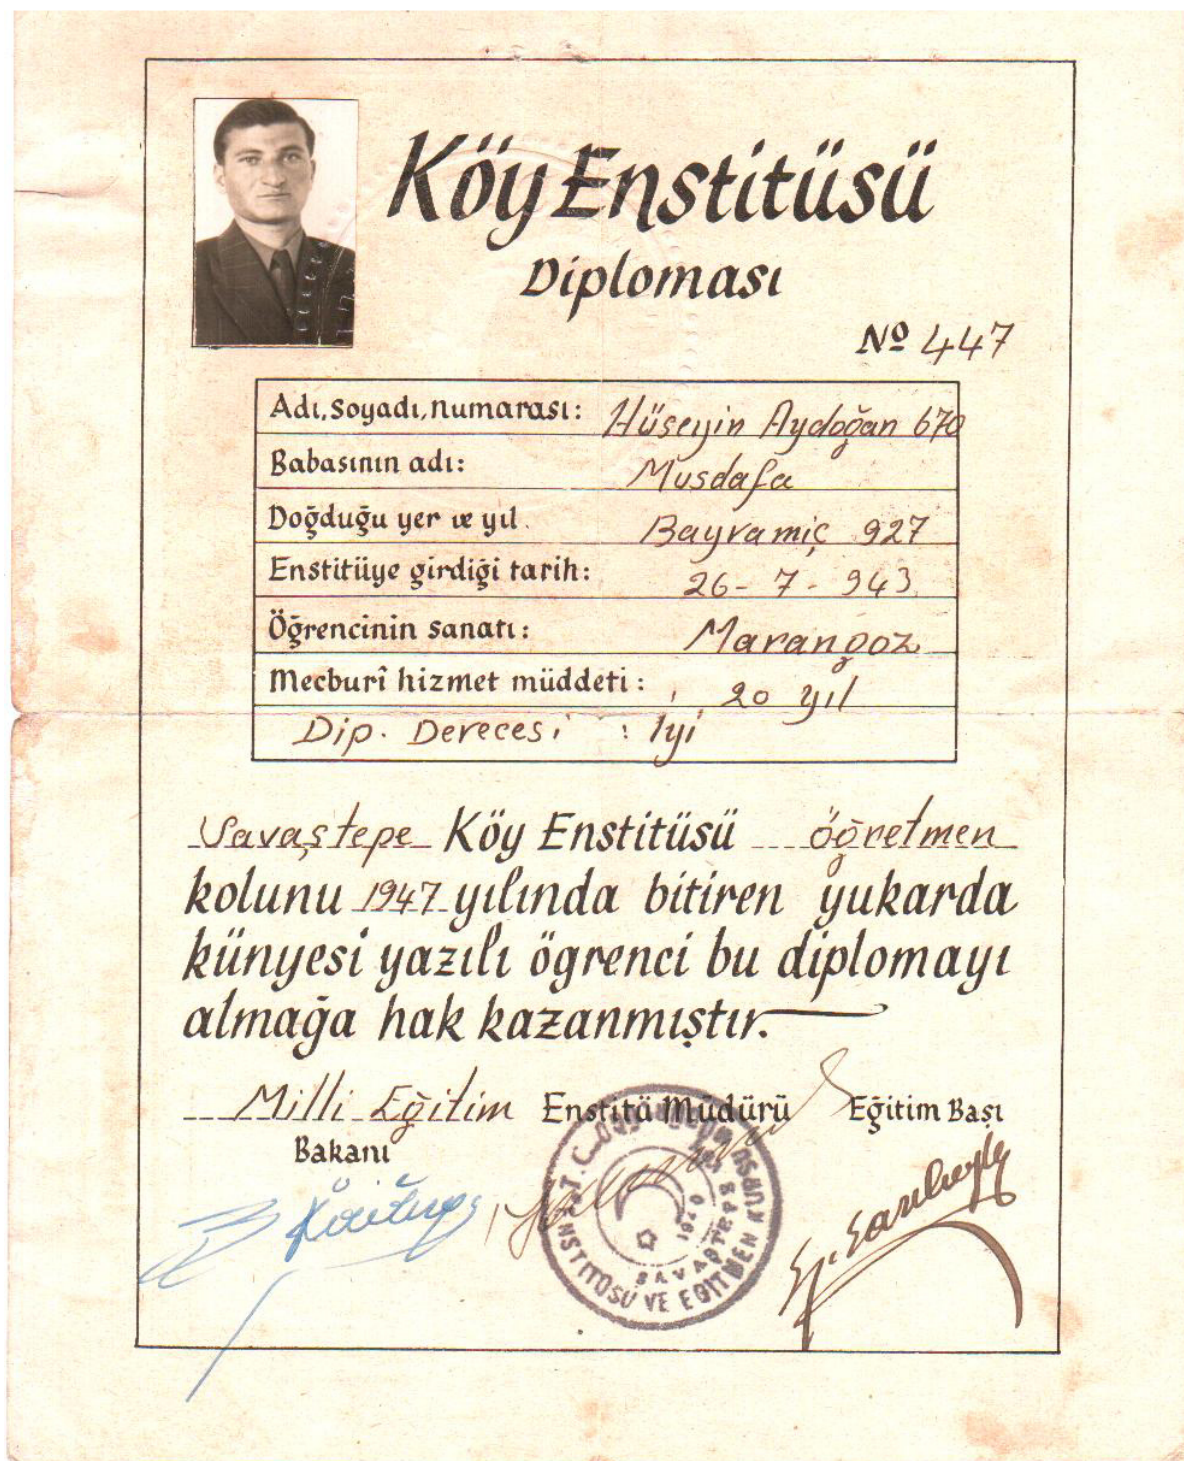 Köy Enstitüsü
Diploması
Nº 447
Adı, soyadı, numarası: Hüseyin Aydoğan 670
Babasının adı: Musdafa
Doğduğu yer ve yıl. Bayramiç 927
Enstitüye girdiği tarih: 26 - 7 - 943
Öğrencinin sanatı: Marangoz
Mecburî hizmet müddeti: 20 yıl
Dip. Derecesi : İyi
Savaştepe Köy Enstitüsü öğretmen
kolunu 1947 yılında bitiren yukarda
künyesi yazılı öğrenci bu diplomayı
almağa hak kazanmıştır.
Milli Eğitim Enstitü Müdürü Eğitim Başı
Bakanı
T.C.
ENSTİTÜSÜ VE EĞİTMEN KURSU
SAVAŞTEPE
1940